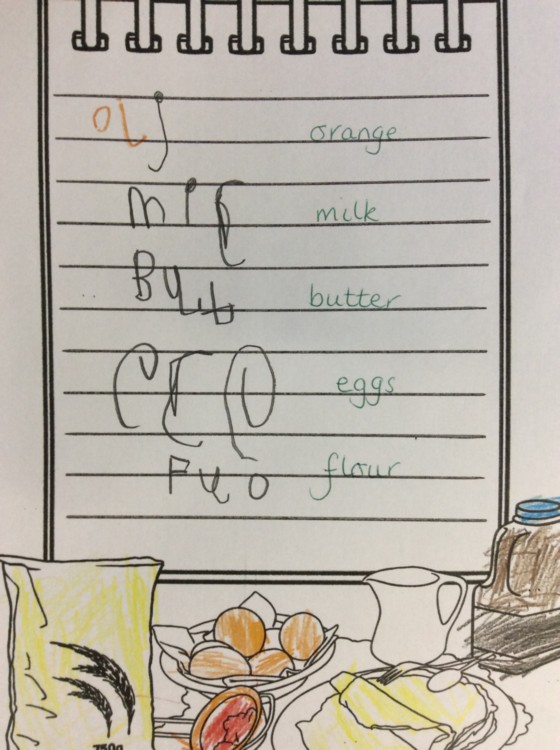 oij orange
mif milk
But butter
eggs
Fuo flour
750g